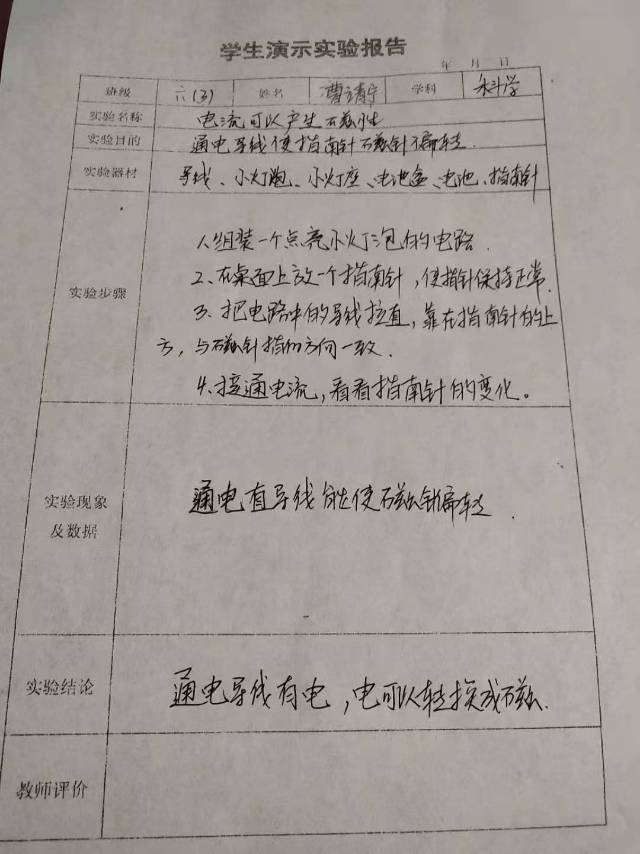 学生演示实验报告
年 月 日
班级 六(3) 姓名 曹靖宁 学科 科学
实验名称 电流可以产生磁性
实验目的 通电导线使指南针磁针偏转
实验器材 导线、小灯泡、小灯座、电池盒、电池、指南针
实验步骤
1.组装一个点亮小灯泡的电路.
2、在桌面上放一个指南针,使指针保持正常.
3、把电路中的导线拉直,靠在指南针的上
方,与磁针指的方向一致.
4、接通电流,看看指南针的变化。
实验现象
及数据
通电直导线能使磁针偏转.
实验结论 通电导线有电,电可以转换成磁.
教师评价